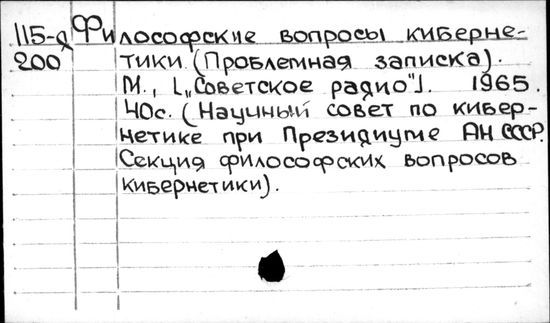 115-д Философские вопросы киберне-
200 тики. (Проблемная записка).
М., [„Советское радио"]. 1965.
40с. (Научный совет по кибер-
нетике при Президиуме АН СССР.
Секция философских вопросов
кибернетики).